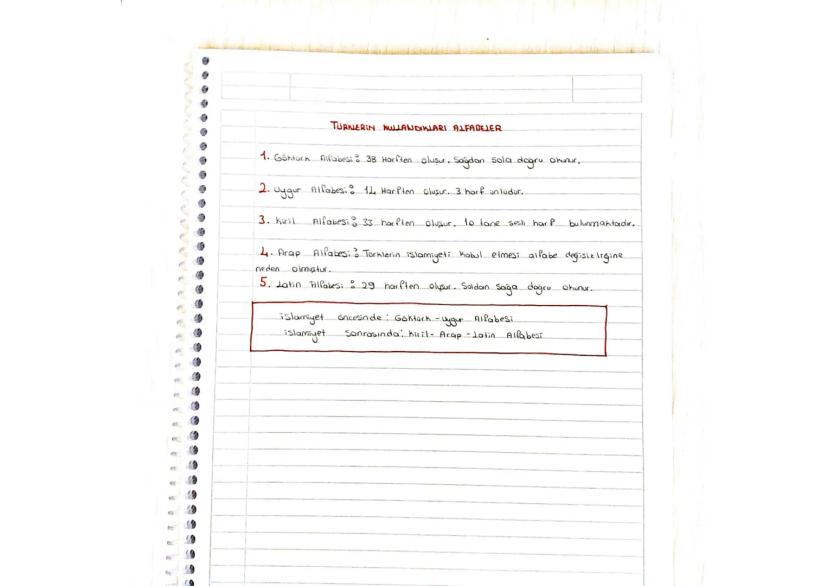 TÜRKLERİN KULLANDIKLARI ALFABELER
1. Göktürk Alfabesi: 38 Harften oluşur. Sağdan sola doğru okunur.
2. Uygur Alfabesi: 14 Harften oluşur. 3 harf ünlüdür.
3. Kiril Alfabesi: 33 harften oluşur. 10 tane sesli harf bulunmaktadır.
4. Arap Alfabesi: Türklerin islamiyeti kabul etmesi alfabe değişikliğine
neden olmuştur.
5. Latin Alfabesi: 29 harften oluşur. Soldan Sağa doğru okunur.
islamiyet öncesinde: Göktürk - uygur Alfabesi
islamiyet sonrasında: kiril - Arap - Latin Alfabesi